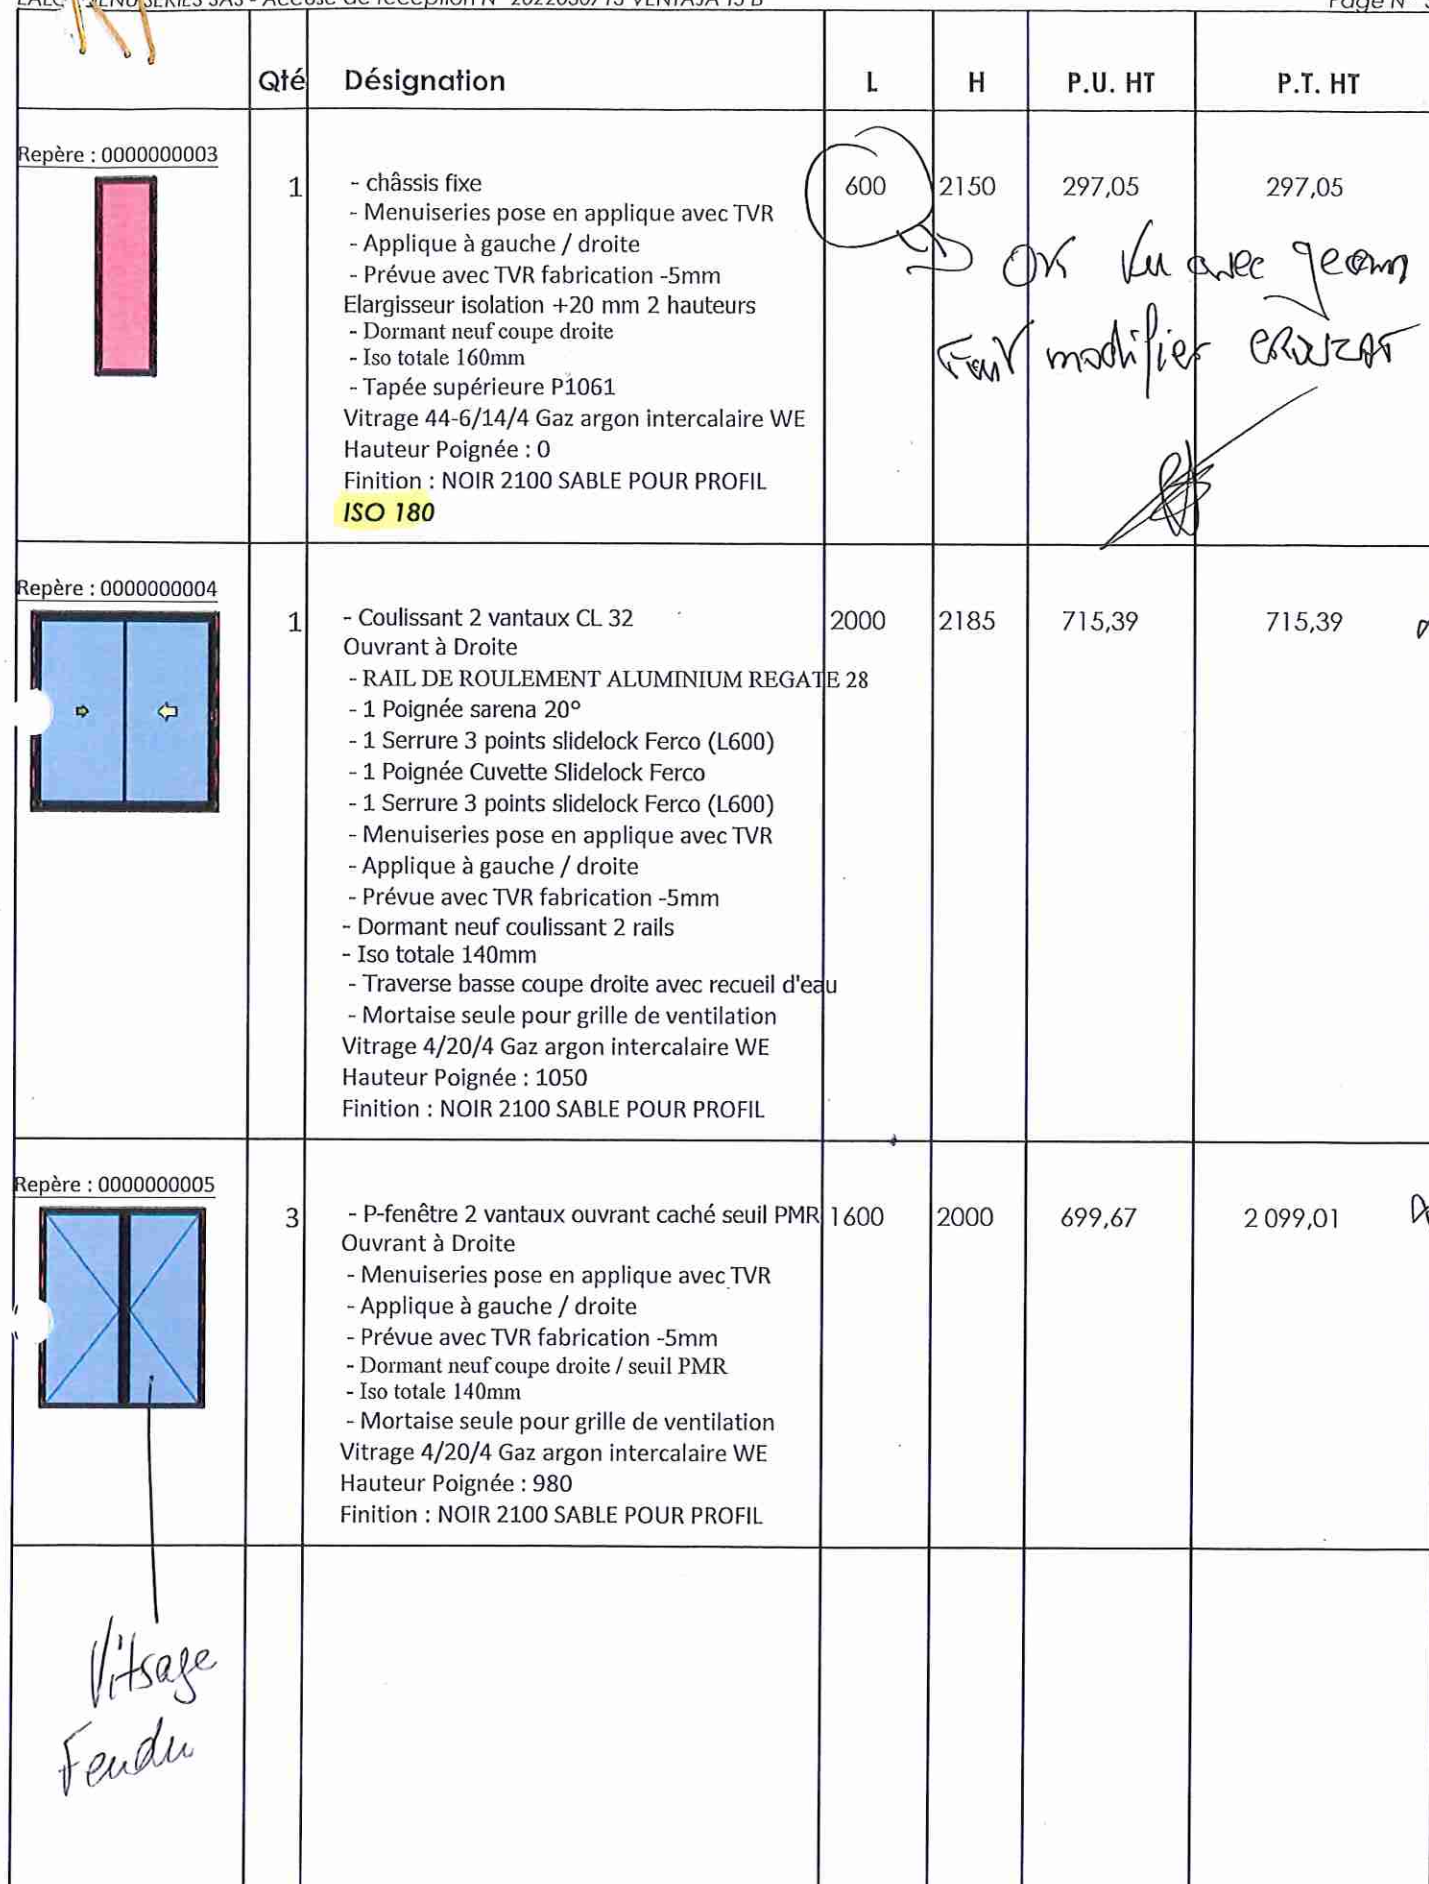 MENUISERIES SAS - Accusé de réception N° 2022030713 VENTAJA 13 B
Page N°
Qté Désignation L H P.U. HT P.T. HT
Repère : 0000000003
1 - châssis fixe 600 2150 297,05 297,05
- Menuiseries pose en applique avec TVR
- Applique à gauche / droite
- Prévue avec TVR fabrication -5mm
OK Vu avec
Elargisseur isolation +20 mm 2 hauteurs
- Dormant neuf coupe droite
- Iso totale 160mm
Fait modifier
- Tapée supérieure P1061
Vitrage 44-6/14/4 Gaz argon intercalaire WE
Hauteur Poignée : 0
Finition : NOIR 2100 SABLE POUR PROFIL
ISO 180
Repère : 0000000004
1 - Coulissant 2 vantaux CL 32 2000 2185 715,39 715,39
Ouvrant à Droite
- RAIL DE ROULEMENT ALUMINIUM REGATE 28
- 1 Poignée sarena 20°
- 1 Serrure 3 points slidelock Ferco (L600)
- 1 Poignée Cuvette Slidelock Ferco
- 1 Serrure 3 points slidelock Ferco (L600)
- Menuiseries pose en applique avec TVR
- Applique à gauche / droite
- Prévue avec TVR fabrication -5mm
- Dormant neuf coulissant 2 rails
- Iso totale 140mm
- Traverse basse coupe droite avec recueil d'eau
- Mortaise seule pour grille de ventilation
Vitrage 4/20/4 Gaz argon intercalaire WE
Hauteur Poignée : 1050
Finition : NOIR 2100 SABLE POUR PROFIL
Repère : 0000000005
3 - P-fenêtre 2 vantaux ouvrant caché seuil PMR 1600 2000 699,67 2 099,01
Ouvrant à Droite
- Menuiseries pose en applique avec TVR
- Applique à gauche / droite
- Prévue avec TVR fabrication -5mm
- Dormant neuf coupe droite / seuil PMR
- Iso totale 140mm
- Mortaise seule pour grille de ventilation
Vitrage 4/20/4 Gaz argon intercalaire WE
Hauteur Poignée : 980
Finition : NOIR 2100 SABLE POUR PROFIL
Vitrage
Fendu